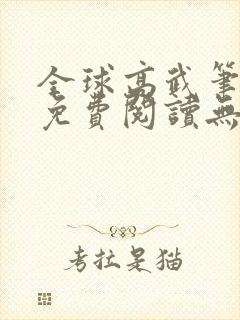 全球高武筆
免費閱讀無
考拉是猫